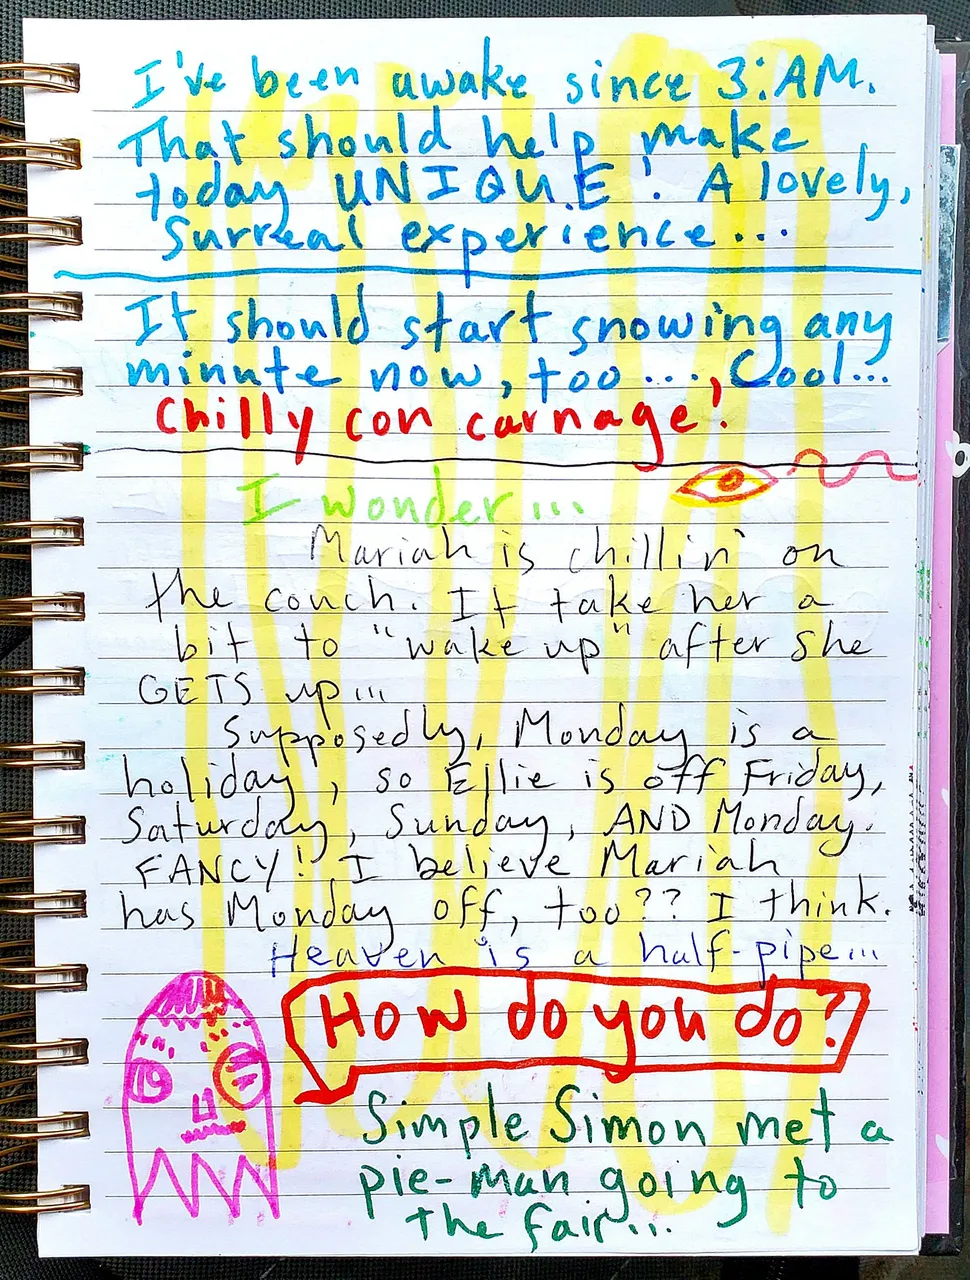 I've been awake since 3:AM.
That should help make
today UNIQUE! A lovely,
surreal experience...
It should start snowing any
minute now, too.... Cool...
Chilly con carnage!
I wonder...
Mariah is chillin' on
the couch. It take her a
bit to "wake up" after she
GETS up...
Supposedly, Monday is a
holiday, so Ellie is off Friday,
Saturday, Sunday, AND Monday.
FANCY! I believe Mariah
has Monday off, too?? I think.
Heaven is a half-pipe...
How do you do?
Simple Simon met a
pie-man going to
the fair...